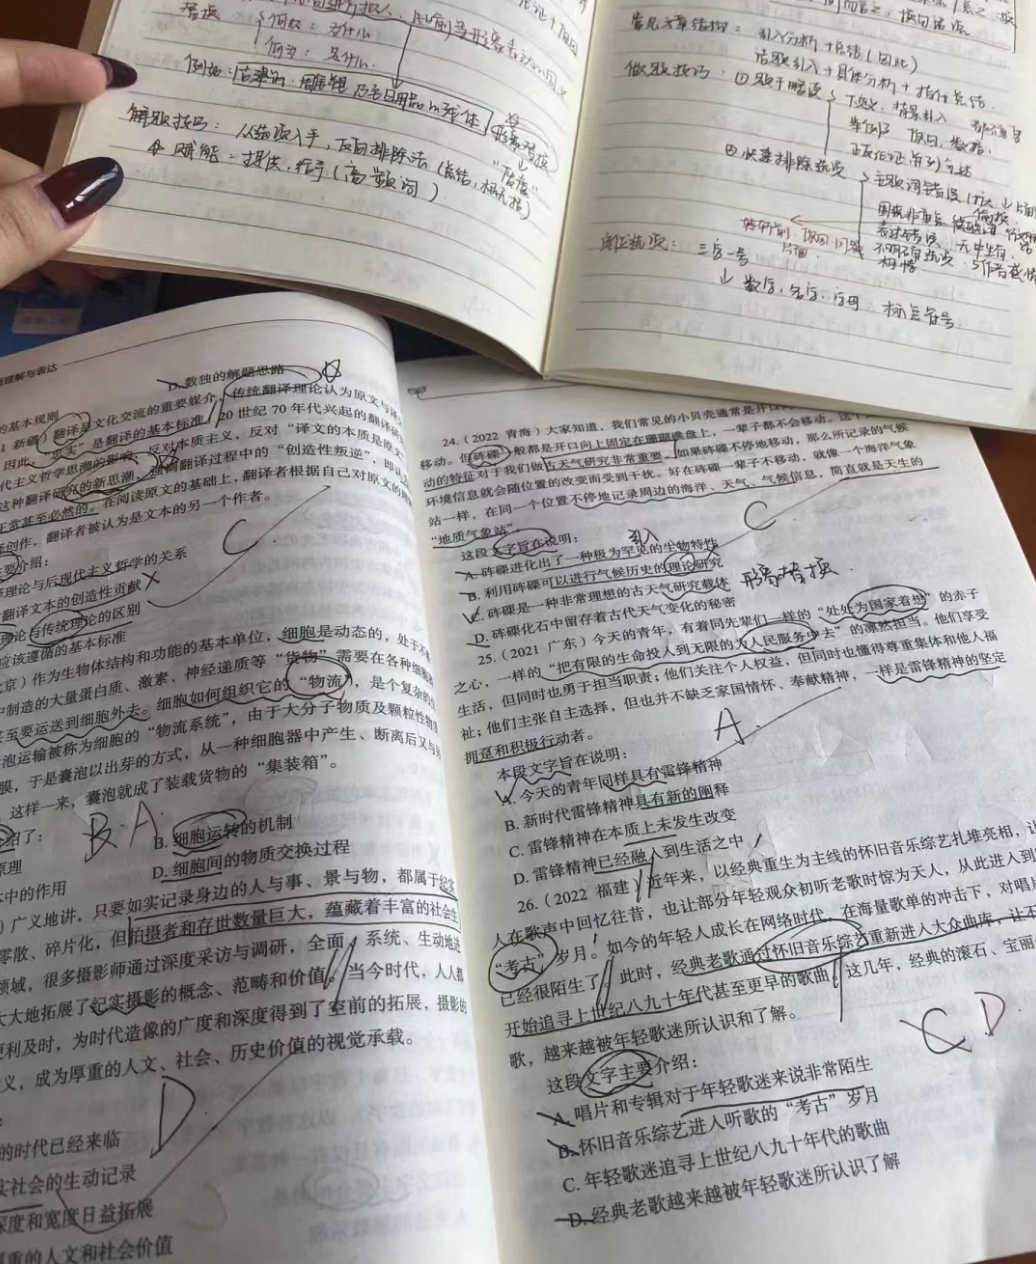 何时：是什么
解题技巧：从选项入手，反向排除法
赋能：提供，给予（高频词）
常见文章结构：引入分析+总结（因此）
话题引入+具体分析+
做题技巧：①题干略读
下定义，背景引入
举例子 原因，数据
②快速排除选项
主观词错误
无中生有
三字一号
数字，名字，字母 标点符号
理解与表达
D. 数独的解题思路
的基本规则
新疆）翻译是文化交流的重要媒介，传统翻译理论认为原文与译
因此，“忠实”是翻译的基本标准。20世纪70年代兴起的翻译
代主义哲学思潮的影响，反对本质主义，反对“译文的本质是原文
这种翻译研究的新思潮，强调翻译过程中的“创造性叛逆”，即认
正常甚至必然的。在阅读原文的基础上，翻译者根据自己对原文的理
创作，翻译者被认为是文本的另一个作者。
主要介绍：
C
理论与后现代主义哲学的关系
翻译文本的创造性贡献
理论与传统理论的区别
应该遵循的基本标准
京）作为生物体结构和功能的基本单位，细胞是动态的，处于不
中制造的大量蛋白质、激素、神经递质等“货物”需要在各种细胞
至要运送到细胞外去。细胞如何组织它的“物流”，是个复杂的
泡运输被称为细胞的“物流系统”，由于大分子物质及颗粒性物
膜，于是囊泡以出芽的方式，从一种细胞器中产生、断离后又与另
这样一来，囊泡就成了装载货物的“集装箱”。
绍了：
B A
B. 细胞运转的机制
原理
D. 细胞间的物质交换过程
中的作用
）广义地讲，只要如实记录身边的人与事、景与物，都属于纪实
零散、碎片化，但拍摄者和存世数量巨大，蕴藏着丰富的社会生
领域，很多摄影师通过深度采访与调研，全面、系统、生动地进
大大地拓展了纪实摄影的概念、范畴和价值。当今时代，人人都
便利及时，为时代造像的广度和深度得到了空前的拓展，摄影的
义，成为厚重的人文、社会、历史价值的视觉承载。
的时代已经来临
D
实社会的生动记录
深度和宽度日益拓展
厚重的人文和社会价值
24.（2022 青海）大家知道，我们常见的小贝壳通常是开口
移动。但砗磲一般都是开口向上固定在珊瑚礁盘上，一辈子都不会移动。这个
动的特征对于我们做古天气研究非常重要。如果砗磲不停地移动，那么所记录的气候
环境信息就会随位置的改变而受到干扰。好在砗磲一辈子不移动，就像一个海洋气象
站一样，在同一个位置不停地记录周边的海洋、天气、气候信息，简直就是天生的
“地质气象站”。
这段文字旨在说明：
C
A. 砗磲进化出了一种极为罕见的生物特性
B. 利用砗磲可以进行气候历史的理论研究
C. 砗磲是一种非常理想的古天气研究载体
形象替换
D. 砗磲化石中留存着古代天气变化的秘密
25.（2021 广东）今天的青年，有着同先辈们一样的“处处为国家着想”的赤子
之心，一样的“把有限的生命投入到无限的为人民服务中去”的凛然担当。他们享受
生活，但同时也勇于担当职责；他们关注个人权益，但同时也懂得尊重集体和他人福
祉；他们主张自主选择，但也并不缺乏家国情怀、奉献精神，一样是雷锋精神的坚定
拥趸和积极行动者。
本段文字旨在说明：
A
A. 今天的青年同样具有雷锋精神
B. 新时代雷锋精神具有新的阐释
C. 雷锋精神在本质上未发生改变
D. 雷锋精神已经融入到生活之中
26.（2022 福建）近年来，以经典重生为主线的怀旧音乐综艺扎堆亮相，让
人在歌声中回忆往昔，也让部分年轻观众初听老歌时惊为天人，从此进入到
“考古”岁月。如今的年轻人成长在网络时代，在海量歌单的冲击下，对唱片
已经很陌生了。此时，经典老歌通过怀旧音乐综艺重新进入大众曲库，让不
开始追寻上世纪八九十年代甚至更早的歌曲。这几年，经典的滚石、宝丽
歌，越来越被年轻歌迷所认识和了解。
这段文字主要介绍：
C D
A. 唱片和专辑对于年轻歌迷来说非常陌生
B. 怀旧音乐综艺进入听歌的“考古”岁月
C. 年轻歌迷追寻上世纪八九十年代的歌曲
D. 经典老歌越来越被年轻歌迷所认识了解